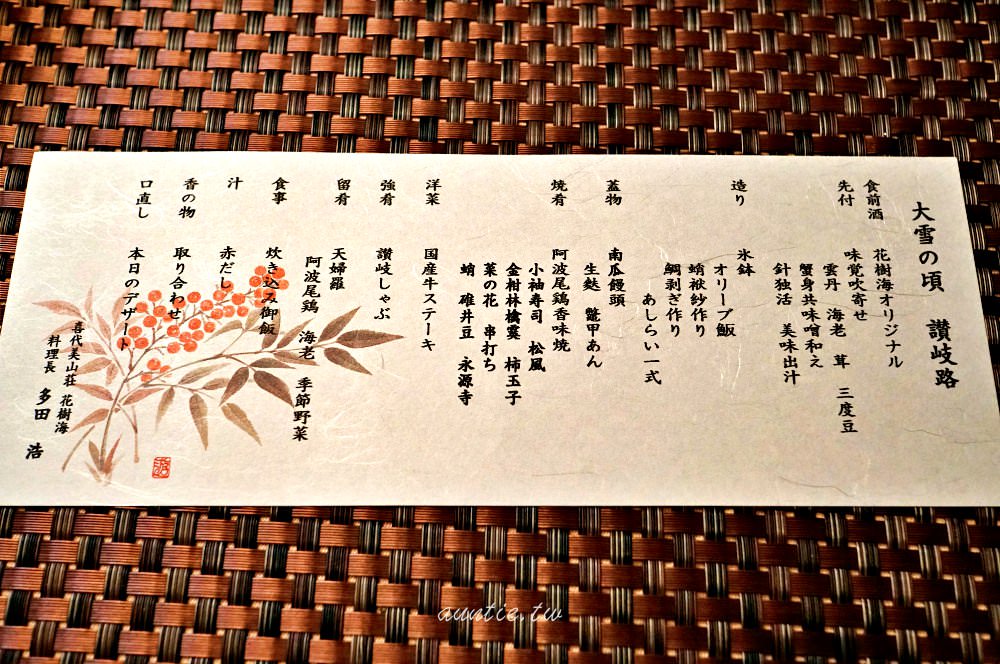 大雪の頃 讃岐路
食前酒 花樹海オリジナル
先付 味覚吹寄せ
雲丹 海老 茸 三度豆
蟹身共味噌和え
針独活 美味出汁
造り 氷鉢
オリーブ飯
蛸袱紗作り
鯛剥ぎ作り
あしらい一式
蓋物 南瓜饅頭
生麩 鼈甲あん
焼肴 阿波尾鶏香味焼
小袖寿司 松風
金柑林檎霙 柿玉子
菜の花 串打ち
蛸 碓井豆 永源寺
洋菜 国産牛ステーキ
強肴 讃岐しゃぶ
留肴 天婦羅
阿波尾鶏 海老 季節野菜
食事 炊き込み御飯
汁 赤だし
香の物 取り合わせ
口直し 本日のデザート
喜代美山荘 花樹海
料理長 多田 浩
auntie.tw